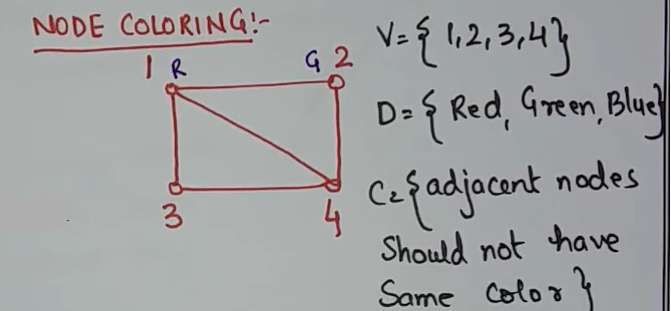 NODE COLORING:-
1 R G 2
3 4
V={1,2,3,4}
D={Red, Green, Blue}
C={adjacent nodes
Should not have
Same color}